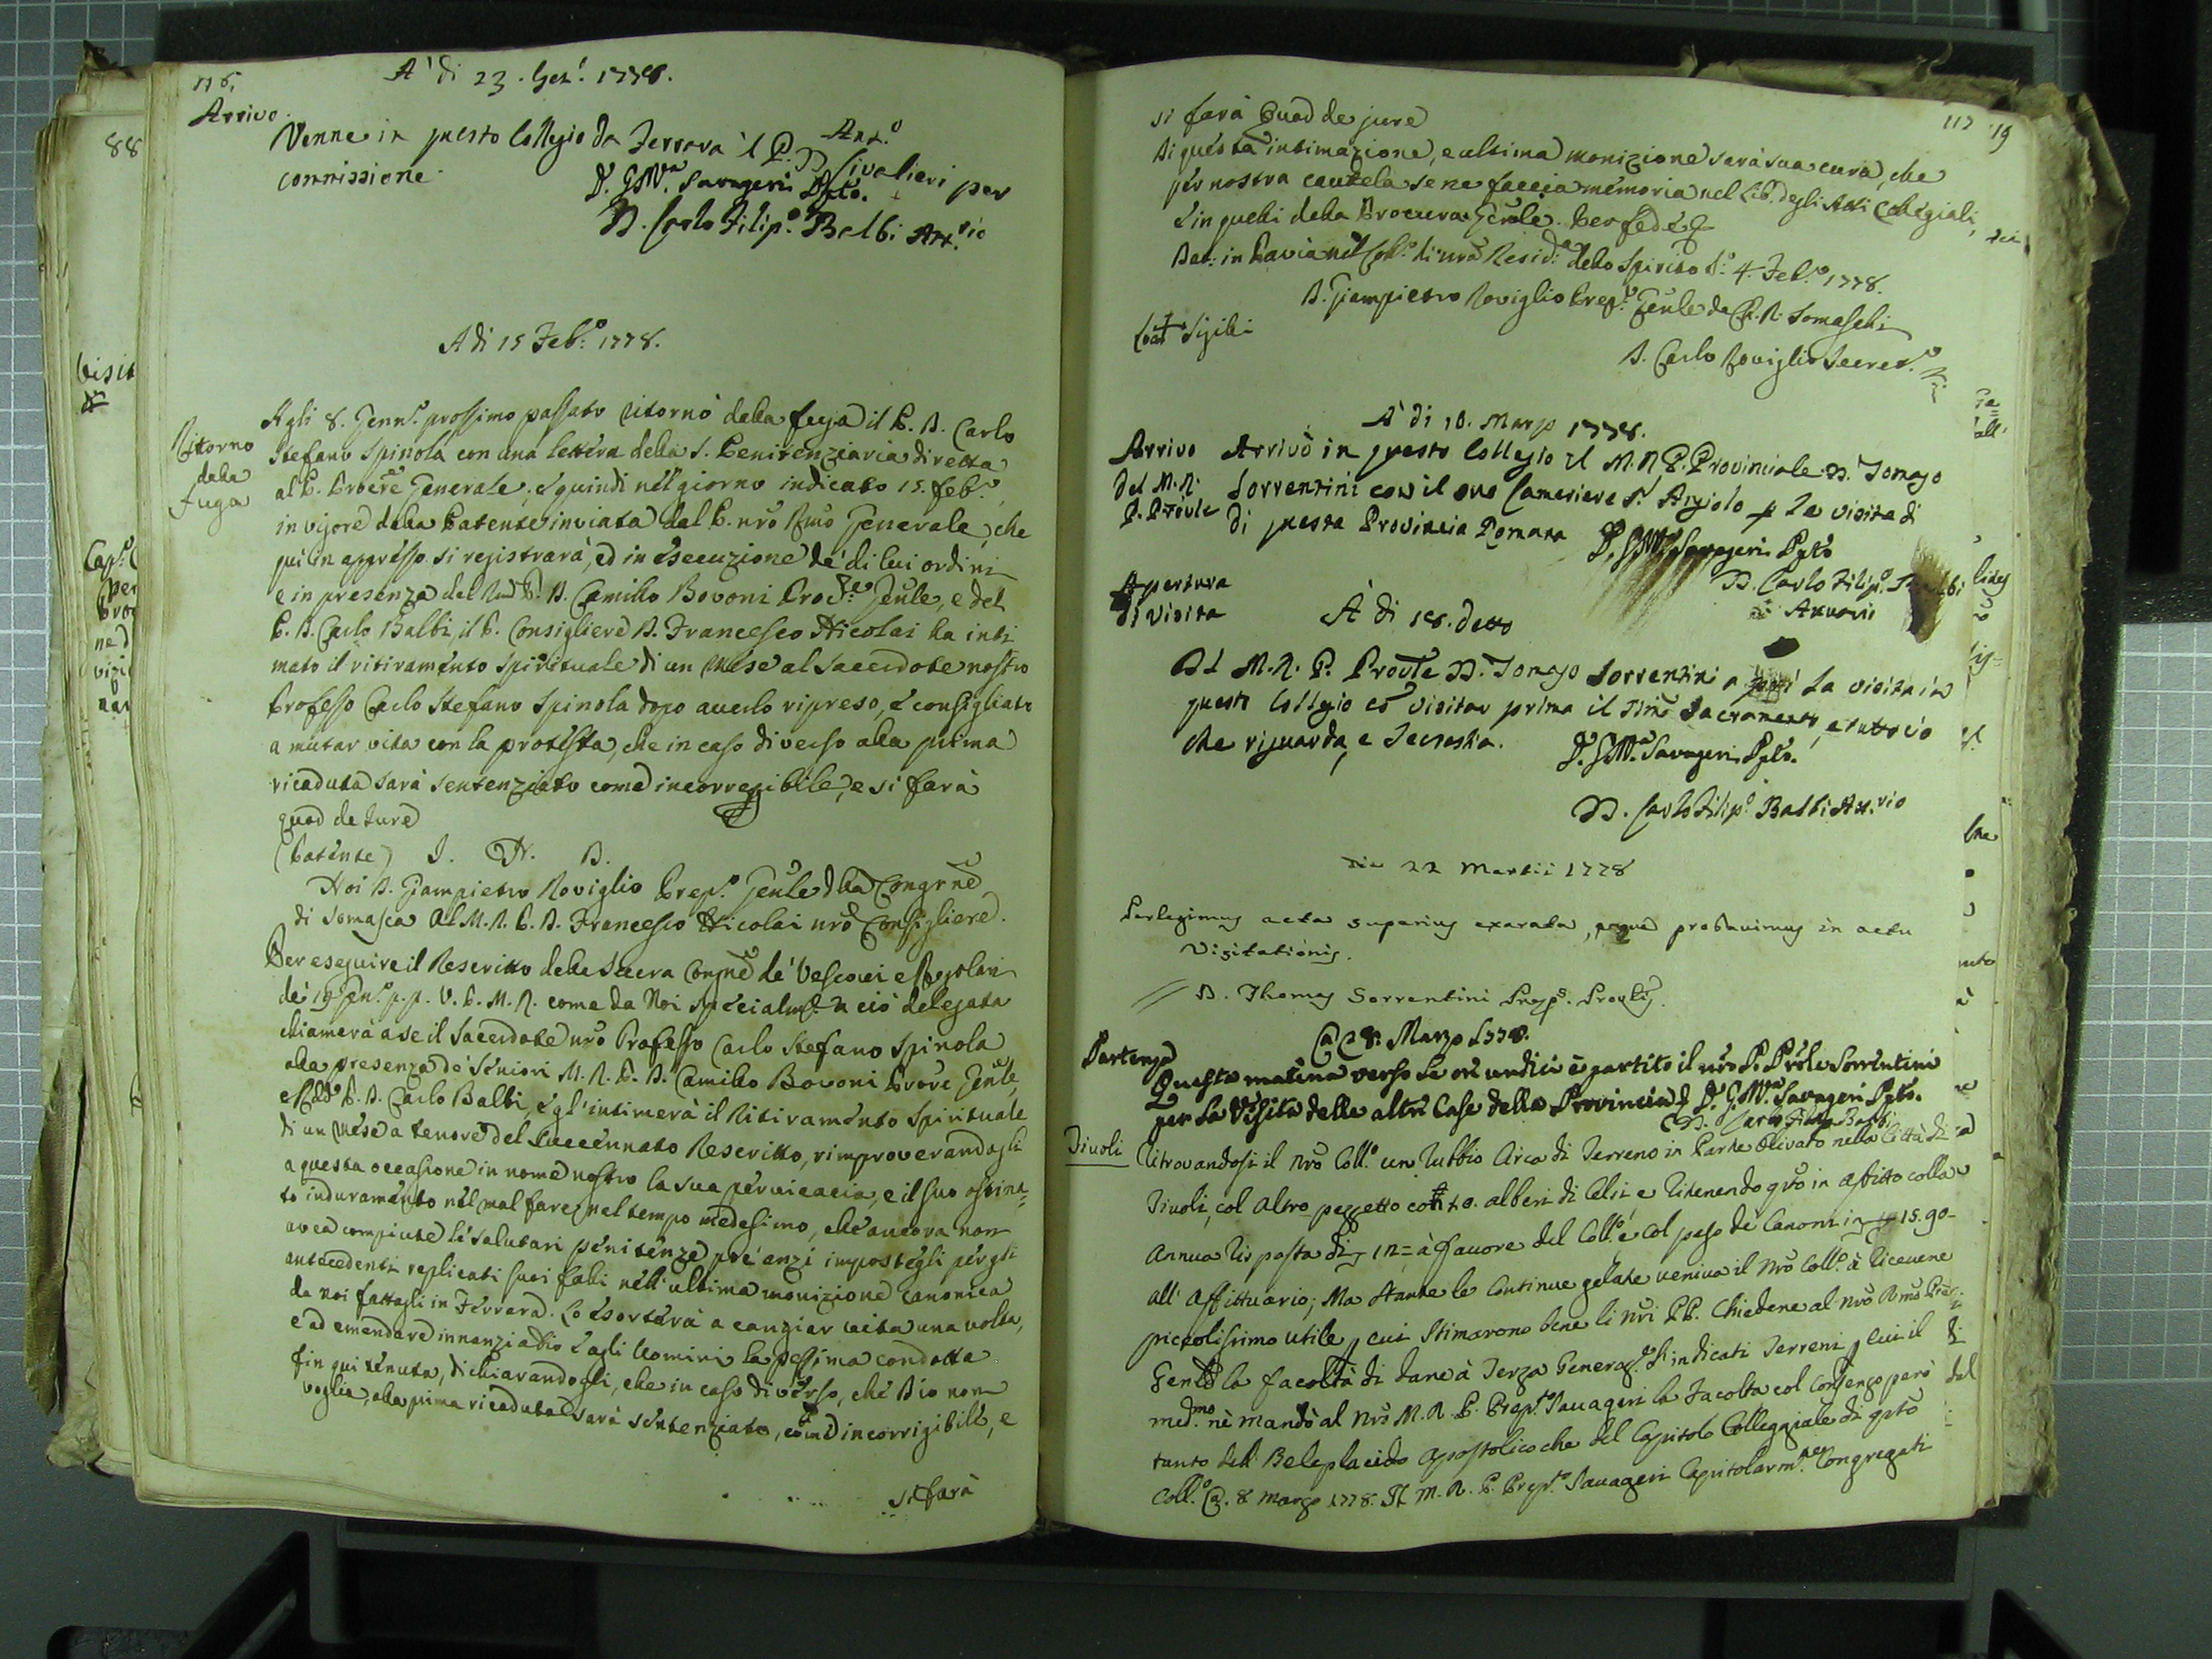 116.
A' di 23. Gen.! 1778.
Arrivo
Venne in questo Collegio da Ferrara il P. D. Ant.o Civalieri per
commissione.
D. G. M.a Savageri Pp.to
D. Carlo Filip.o Balbi Att.rio
A di 15 Feb.o 1778.
Ritorno
dalla
fuga
Agli 8. Genn.o prossimo passato ritornò dalla fuga il P. D. Carlo
Stefano Spinola con una lettera della S. Penitenziaria diretta
al P. Procre Generale, e quindi nel giorno indicato 15. feb.o
in vigore della Patente inviata dal P. nro Rmo Generale, che
qui in appresso si registrarà, ed in esecuzione de' di lui ordini
e in presenza del Rmo P. D. Camillo Bovoni Proc.re Genle, e del
P. D. Carlo Balbi, il P. Consigliere D. Francesco Nicolai ha inti
mato il ritiramento spirituale di un mese al Sacerdote nostro
Professo Carlo Stefano Spinola dopo averlo ripreso, e consigliato
a mutar vita con la protesta, che in caso diverso alla prima
ricaduta sarà sentenziato come incorregibile, e si farà
quod de jure
(Patente) J. N. D.
Noi D. Giampietro Roviglio Prep.o Genle della Congrne
di Somasca Al M. R. P. D. Francesco Nicolai nro Consigliere.
Per eseguire il Rescritto della Sacra Congne de' Vescovi e Regolari
de' 19 Gen.o p.p. V. P. M. R. come da Noi specialmte a ciò delegata
chiamerà a se il Sacerdote nro Professo Carlo Stefano Spinola
alla presenza de' Seniori M. R. P. D. Camillo Bovoni Procre Genle
e Rdo P. D. Carlo Balbi, e gl'intimerà il Ritiramento Spirituale
di un mese a tenore del succennato Rescritto, rimproverandogli
a questa occasione in nome nostro la sua pervicacia, e il suo ostina=
to induramento nel mal fare, nel tempo medesimo, che ancora non
avea compiute le salutari penitenze pre'anzi impostegli per gli
antecedenti replicati suoi falli nell'ultima monizione canonica
da noi fattagli in Ferrara. Lo esorterà a cangiar vita una volta,
e ad emendare innanzi a Dio e agli Uomini la pessima condotta
fin qui tenuta, dichiarandogli, che in caso diverso, che Dio non
voglia, alla prima ricaduta sarà sentenziato, come incorrigibile, e
si farà
117 19
si farà quod de jure
Di questa intimazione, e ultima monizione sarà sua cura, che
per nostra cautela se ne faccia memoria nel Lib. degli Atti Collegiali,
e in quelli della Procura Genle. Per fede &
Dat: in Pavia nel Coll.o di nra Resid.a dello Spirito S.o 4. Feb.o 1778.
D. Giampietro Roviglio Prep.o Genle de' Ch. R. Somaschi
Loc + Sigilli
D. Carlo Roviglio Secret.o
A' di 18. Marzo 1778.
Arrivo
del M. R.
P. Provle
Arrivò in questo Collegio il M. R. P. Provinciale D. Tomaso
Sorrentini con il suo Cameriere S.r Angiolo p la visita di
di questa Provincia Romana
D. G. M.a Savageri Pp.to
D. Carlo Filip.o Balbi
Attuario
Apertura
di Visita
A di 18. detto
Il M. R. P. Provle D. Tomaso Sorrentini a la visita in
questo Collegio co visitar prima il Smo Sacramento, e tutto ciò
che riguarda, e Secrestia.
D. G. M.a Savageri Pp.to.
D. Carlo Filip.o Balbi Att.rio
Die 22 Martii 1778
Perlegimus acta superius exarata, eaque probavimus in actu
Visitationis.
D. Thomas Sorrentini Prep.s Provlis.
Partenza
A 28. Marzo 1778.
Questa matina verso le ore undici è partito il nro P. Prole Sorrentini
per la Visita delle altre Case della Provincia D. G. M.a Savageri Pp.to.
D. Carlo Filip.o Balbi
Tivoli
Ritrovandosi il Nro Coll.o un Rubbio circa di Terreno in Parte Olivato nella Città di
Tivoli, col altro pezzetto con 40. alberi di Celsi e ritenendo qsto in affitto colla
annua risposta di 12= à favore del Coll.o, e col peso de Canoni in 15.90-
all' Affittuario; Ma stante le continue gelate veniva il Nro Coll.o à ricevere
piccolissimo utile p cui stimarono bene li Nri PP. chiedere al Nro Rmo Prep.
Genle la facoltà di dare à Terza Generaz.e gl'indicati Terreni p cui il
med.mo nè mandò al Nro M. R. P. Prep.to Savageri la Facolta col consenzo però
tanto del Beleplacido Apostolico che del Capitolo Colleggiale di qsto
Coll.o A. 8 Marzo 1778. Il M. R. P. Prep.to Savageri Capitolarm.te Congregati